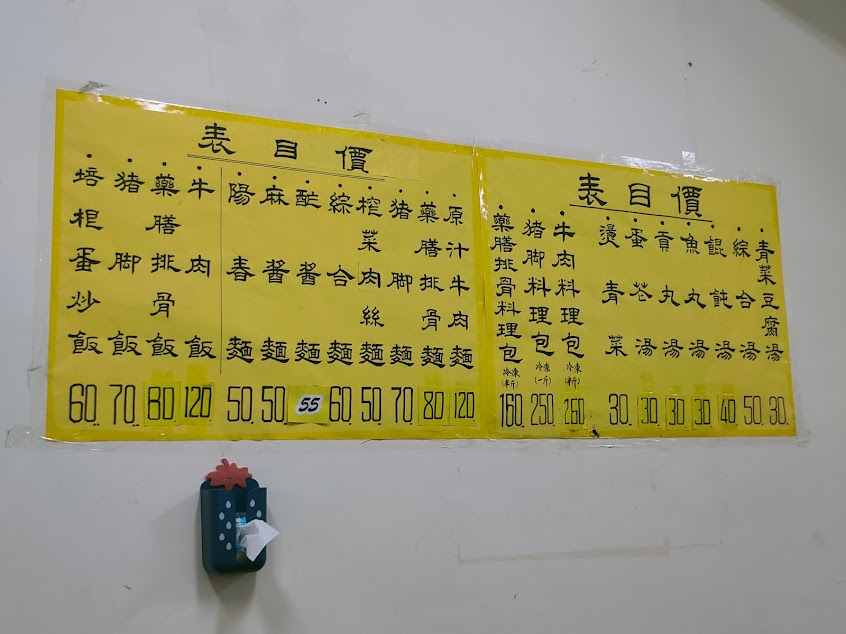 價目表
青菜豆腐湯 30
綜合湯 50
餛飩湯 40
魚丸湯 30
貢丸湯 30
蛋花湯 30
燙青菜 30
牛肉料理包 冷凍(半斤) 260
猪脚料理包 冷凍(一斤) 250
藥膳排骨料理包 冷凍(半斤) 160
價目表
原汁牛肉麵 120
藥膳排骨麵 80
猪脚麵 70
榨菜肉絲麵 50
綜合麵 60
酢醬麵 55
麻醬麵 50
陽春麵 50
牛肉飯 120
藥膳排骨飯 80
猪脚飯 70
培根蛋炒飯 60